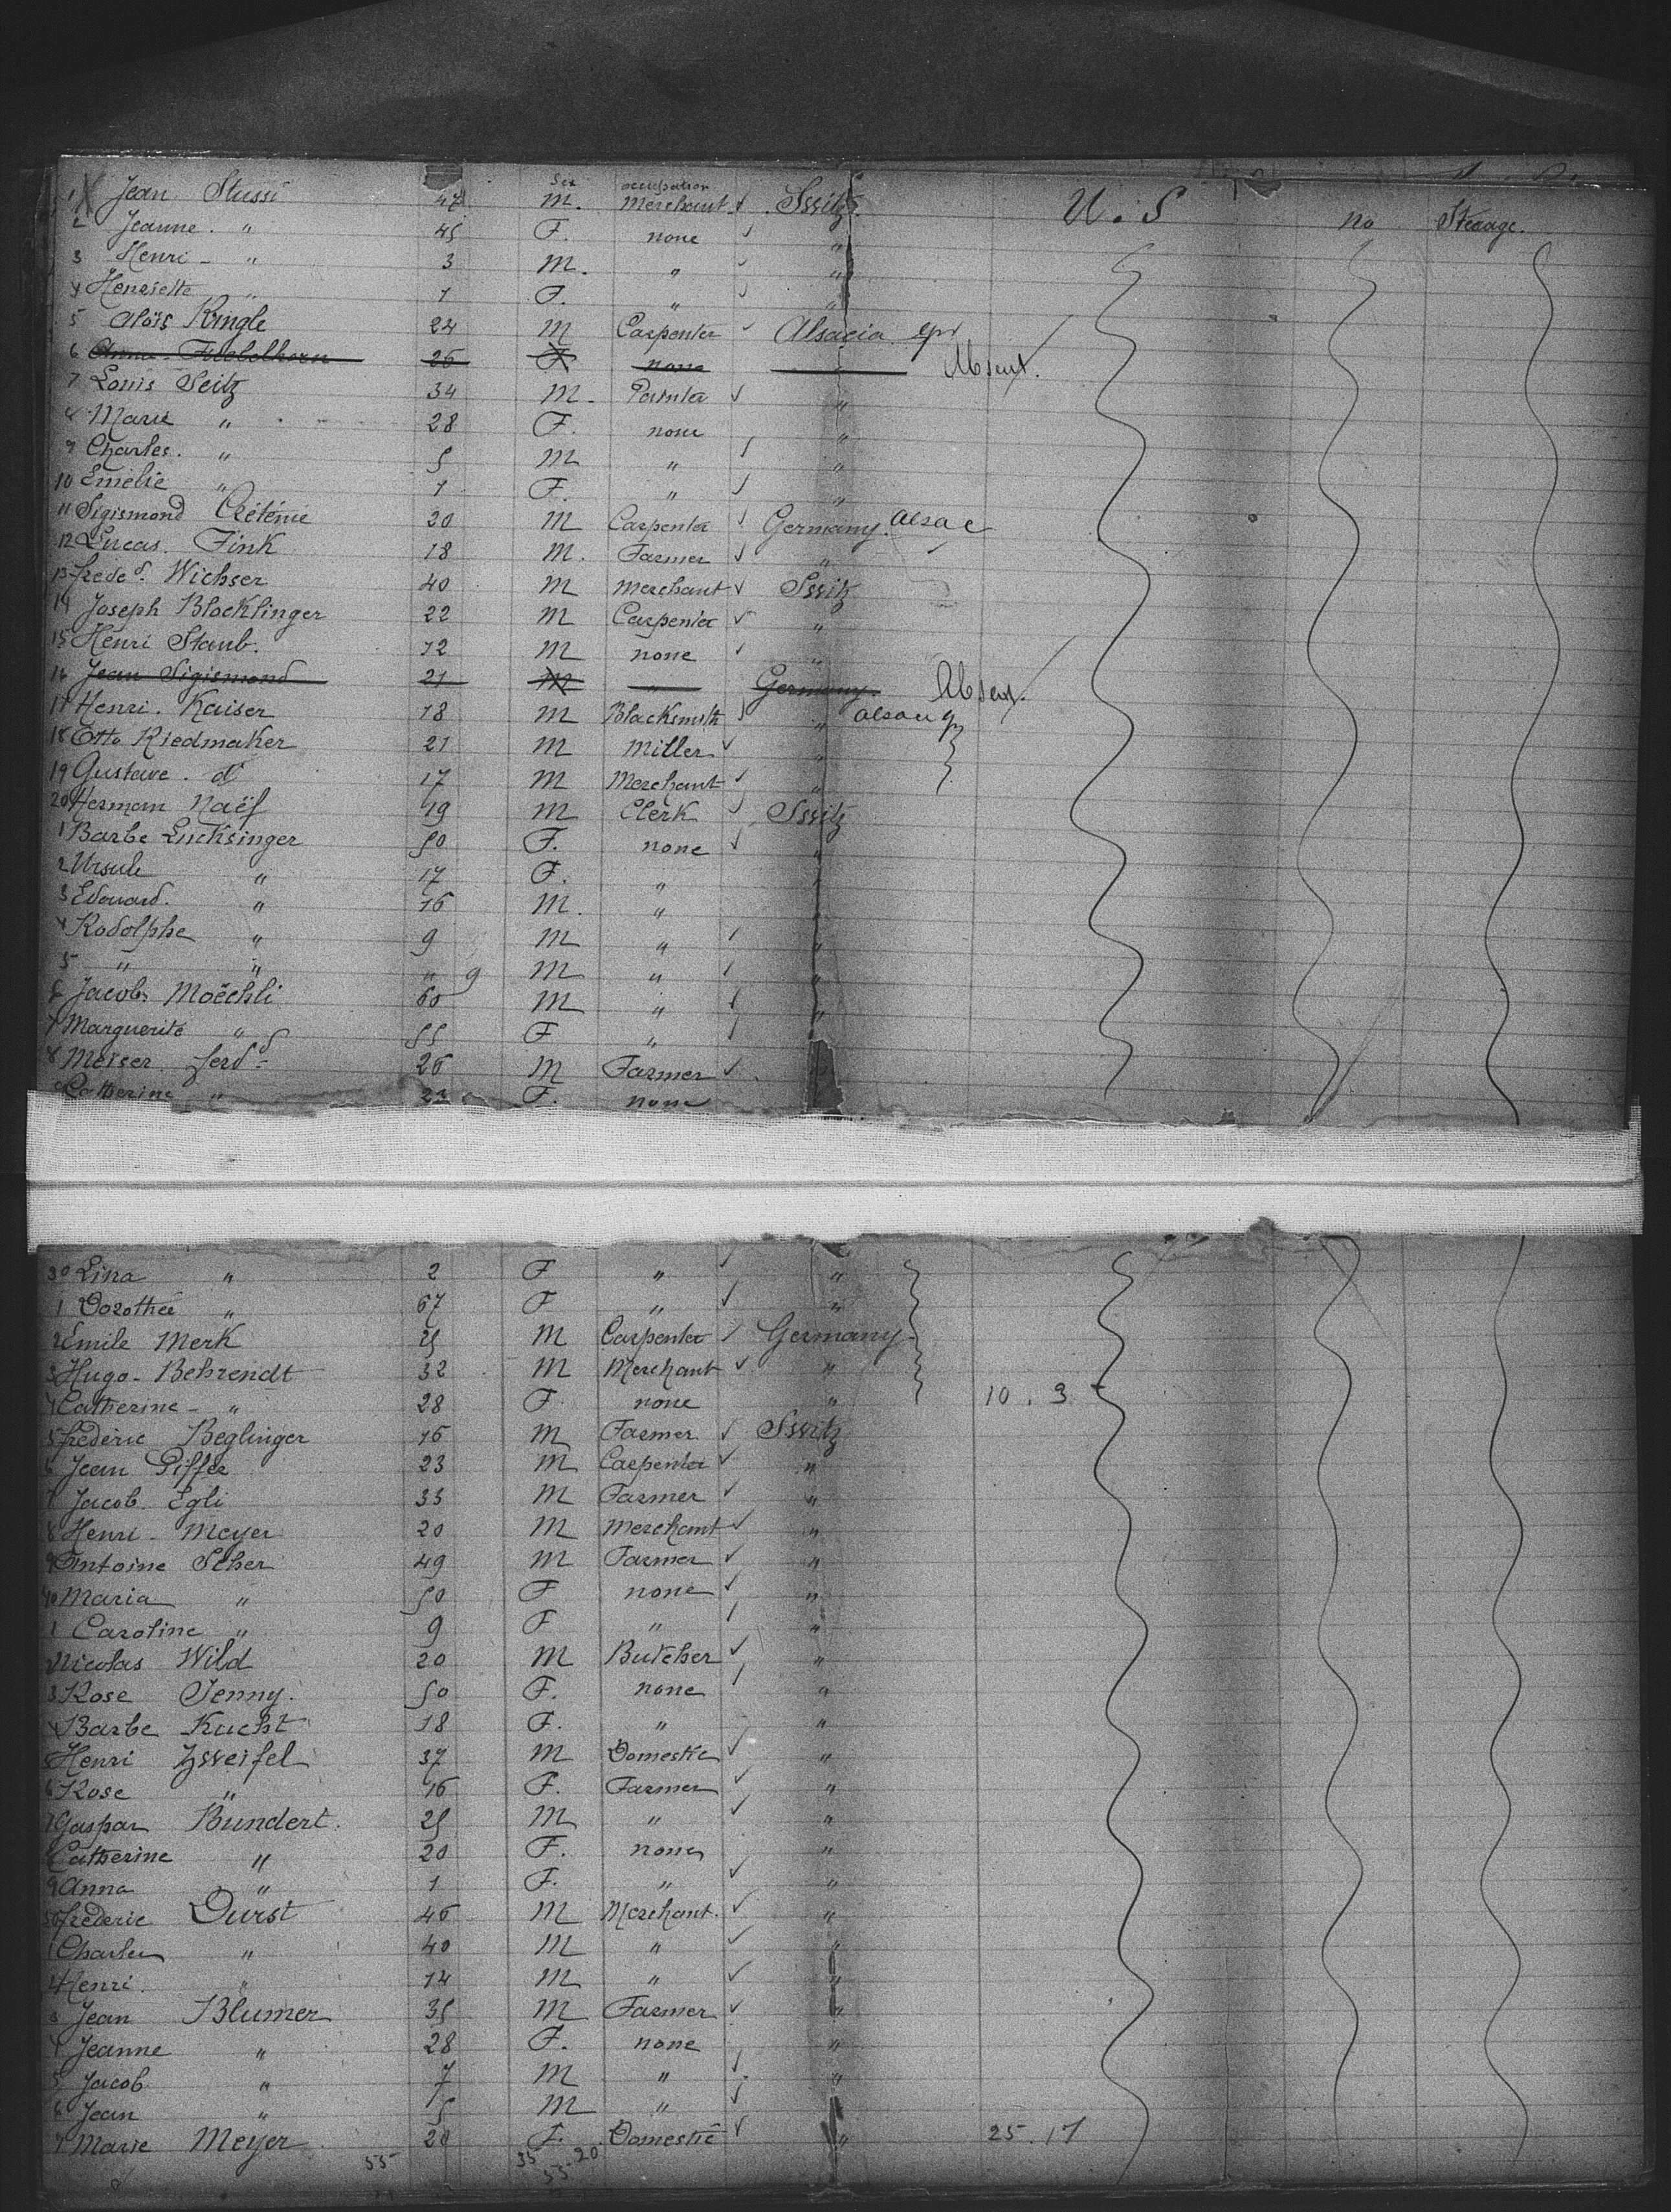 Sex occupation
1 Jean Stussi 47 M. Merchant Sssitz. U. S no Steeage.
2 Jeanne. " 45 F. none "
3 Henri - " 3 M. " "
4 Henriette " 1 F. " "
5 Aloïs Kingle 24 M Carpenter Alsacia
6 Anna 26 F none Absent.
7 Louis Seitz 34 M. Painter "
8 Marie " 28 F. none "
9 Charles. " 5 M " "
10 Emelie " 1 F. " "
11 Sigismond 20 M Carpenter Germany. Alsac
12 Lucas. Fink 18 M. Farmer "
13 frede d. Wichser 40 M Merchant Sssitz
14 Joseph Blocklinger 22 M Carpenter "
15 Henri Staub. 12 M none "
16 Jean Sigismond 21 M " Germany Absent.
17 Henri. Kaiser 18 M Blacksmith "
18 Otto Riedmaker 21 M Miller "
19 Gustave. do 17 M Merchant "
20 Herman Naëf 19 M Clerk Sssitz
1 Barbe Lucksinger 50 F. none "
2 Ursule " 17 F. " "
3 Edouard. " 16 M. " "
4 Rodolphe " 9 M " "
5 " " " 9 M " "
6 Jacob Moëchli 60 M " "
7 Marguerite " 55 F " "
8 Meiser ferd d 26 M Farmer
9 Catherine " F. none
30 Lina " 2 F " "
1 Dorothée " 67 F " "
2 Emile Merk 25 M Carpenter Germany
3 Hugo - Behrendt 32 M Merchant "
4 Catherine - " 28 F. none " 10. 3
5 frederic Beglinger 16 M Farmer Sssitz
6 Jean Piffer 23 M Carpenter "
7 Jacob Egli 33 M Farmer "
8 Henri - Meyer 20 M Merchant "
9 Antoine Scher 49 M Farmer "
40 Maria " 50 F none "
1 Caroline " 9 F " "
2 Nicolas Wild 20 M Butcher "
3 Rose Jenny. 50 F. none "
4 Barbe Kucht 18 F. " "
5 Henri Zssveifel 37 M Domestic "
6 Rose " 16 F. Farmer "
7 Gaspar Bundert. 25 M " "
8 Catherine " 20 F. none "
9 Anna " 1 F. " "
50 frederic Durst 46 M Merchant. "
1 Charles " 40 M " "
2 Henri. " 14 M " "
3 Jean Blumer 35 M Farmer "
4 Jeanne " 28 F. none "
5 Jacob " 7 M " "
6 Jean " 5 M " "
7 Marie Meyer 20 F. Domestic " 25. 17
55 35 20
55